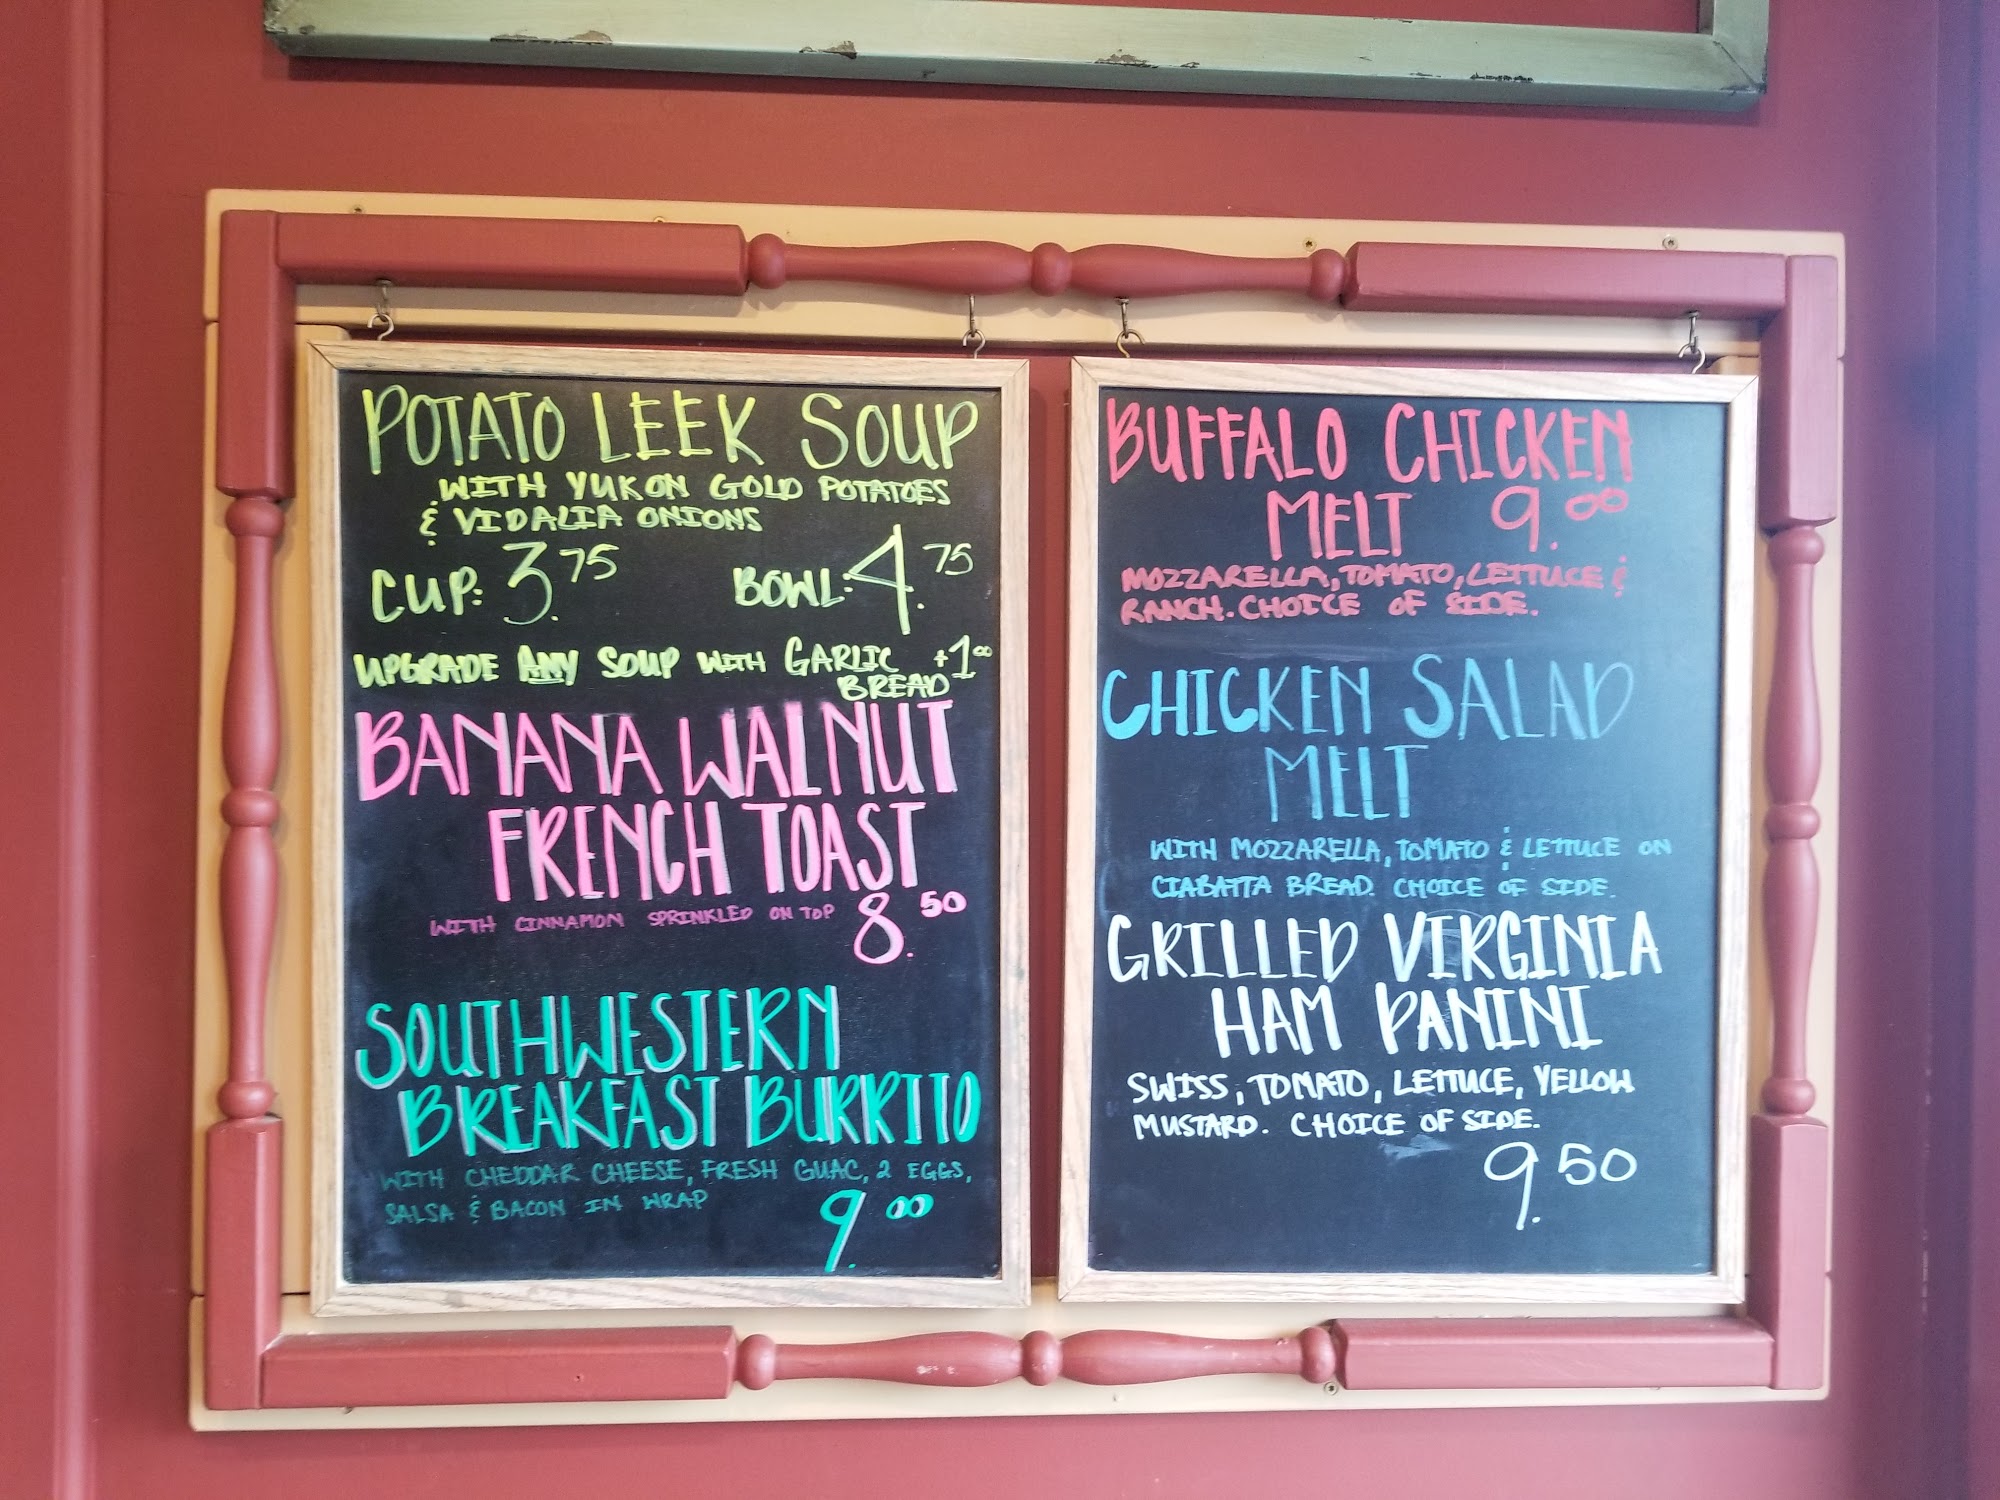 POTATO LEEK SOUP
WITH YUKON GOLD POTATOES
& VIDALIA ONIONS
CUP: 3.75 BOWL: 4.75
UPGRADE ANY SOUP WITH GARLIC BREAD +1.00
BANANA WALNUT
FRENCH TOAST
WITH CINNAMON SPRINKLED ON TOP 8.50
SOUTHWESTERN
BREAKFAST BURRITO
WITH CHEDDAR CHEESE, FRESH GUAC, 2 EGGS,
SALSA & BACON IN WRAP 9.00
BUFFALO CHICKEN
MELT 9.00
MOZZARELLA, TOMATO, LETTUCE &
RANCH. CHOICE OF SIDE.
CHICKEN SALAD
MELT
WITH MOZZARELLA, TOMATO & LETTUCE ON
CIABATTA BREAD. CHOICE OF SIDE.
GRILLED VIRGINIA
HAM PANINI
SWISS, TOMATO, LETTUCE, YELLOW
MUSTARD. CHOICE OF SIDE.
9.50